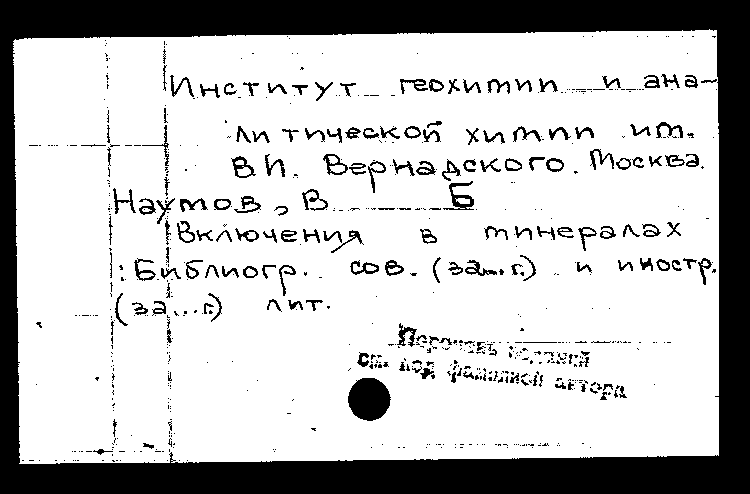 Институт геохимии и ана-
литической химии им.
В.И. Вернадского. Москва.
Наумов, В Б
Включения в минералах
: Библиогр. сов. (за... г.) и иностр.
(за... г.) лит.
Перечень изданий
см. под фамилией автора